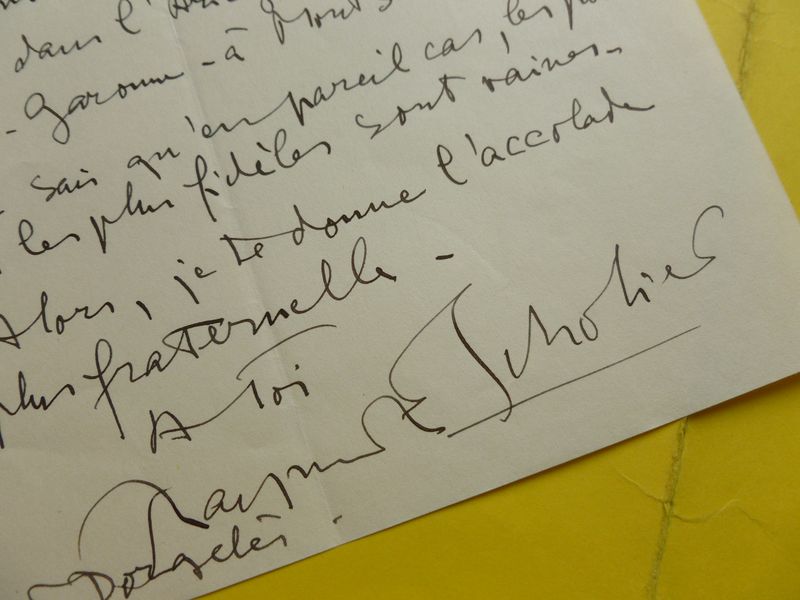 dans l'
-Garonne - à
sais qu'en pareil cas, les
les plus fidèles sont vaines -
Alors, je te donne l'accolade
plus fraternelle -
A toi
Raymond Escholier
Dorgelès.